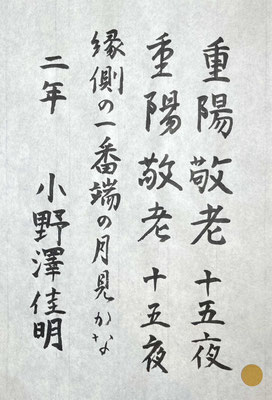 重陽敬老 十五夜
重陽敬老 十五夜
縁側の一番端の月見かな
二年 小野澤佳明